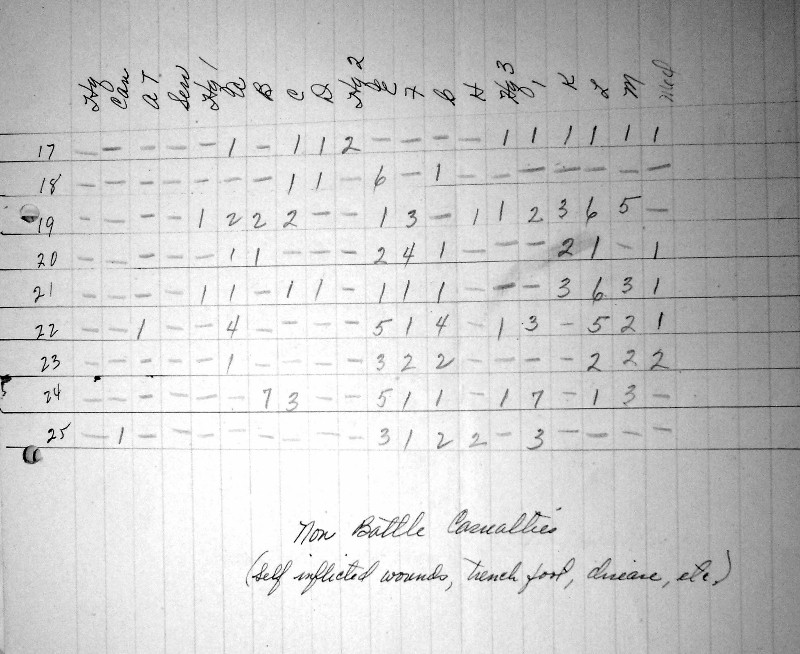 Hq Can AT Serv Hq 1 A B C D Hq 2 E F G H Hq 3 I K L M med
17 – – – – – 1 – 1 1 2 – – – – 1 1 1 1 1 1
18 – – – – – – – 1 1 – 6 – 1 – – – – – – –
19 – – – – 1 2 2 2 – – 1 3 – 1 1 2 3 6 5 –
20 – – – – – 1 1 – – – 2 4 1 – – – 2 1 – 1
21 – – – – 1 1 – 1 1 – 1 1 1 – – – 3 6 3 1
22 – – 1 – – 4 – – – – 5 1 4 – 1 3 – 5 2 1
23 – – – – – 1 – – – – 3 2 2 – – – – 2 2 2
24 – – – – – – 7 3 – – 5 1 1 – 1 7 – 1 3 –
25 – 1 – – – – – – – – 3 1 2 2 – 3 – – – –
Non Battle Casualties
(Self inflicted wounds, trench foot, disease, etc.)